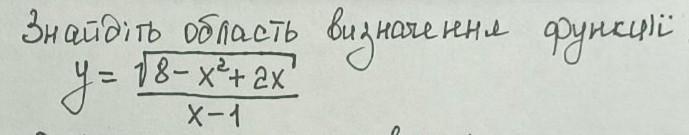 Знайдіть область визначення функції
y = √(8 - x² + 2x) / (x - 1)